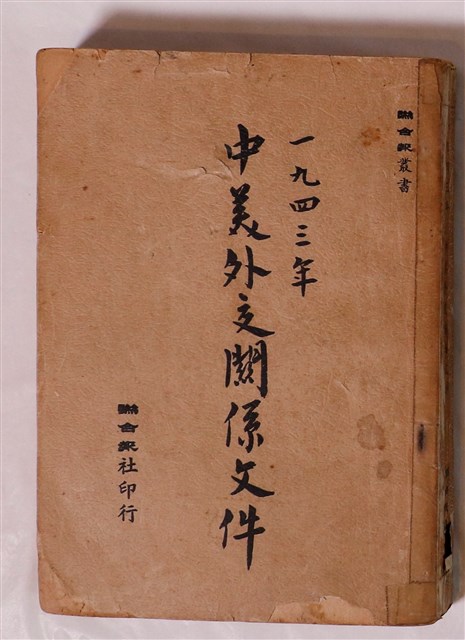 聯合報叢書
一九四三年
中美外交關係文件
聯合報社印行